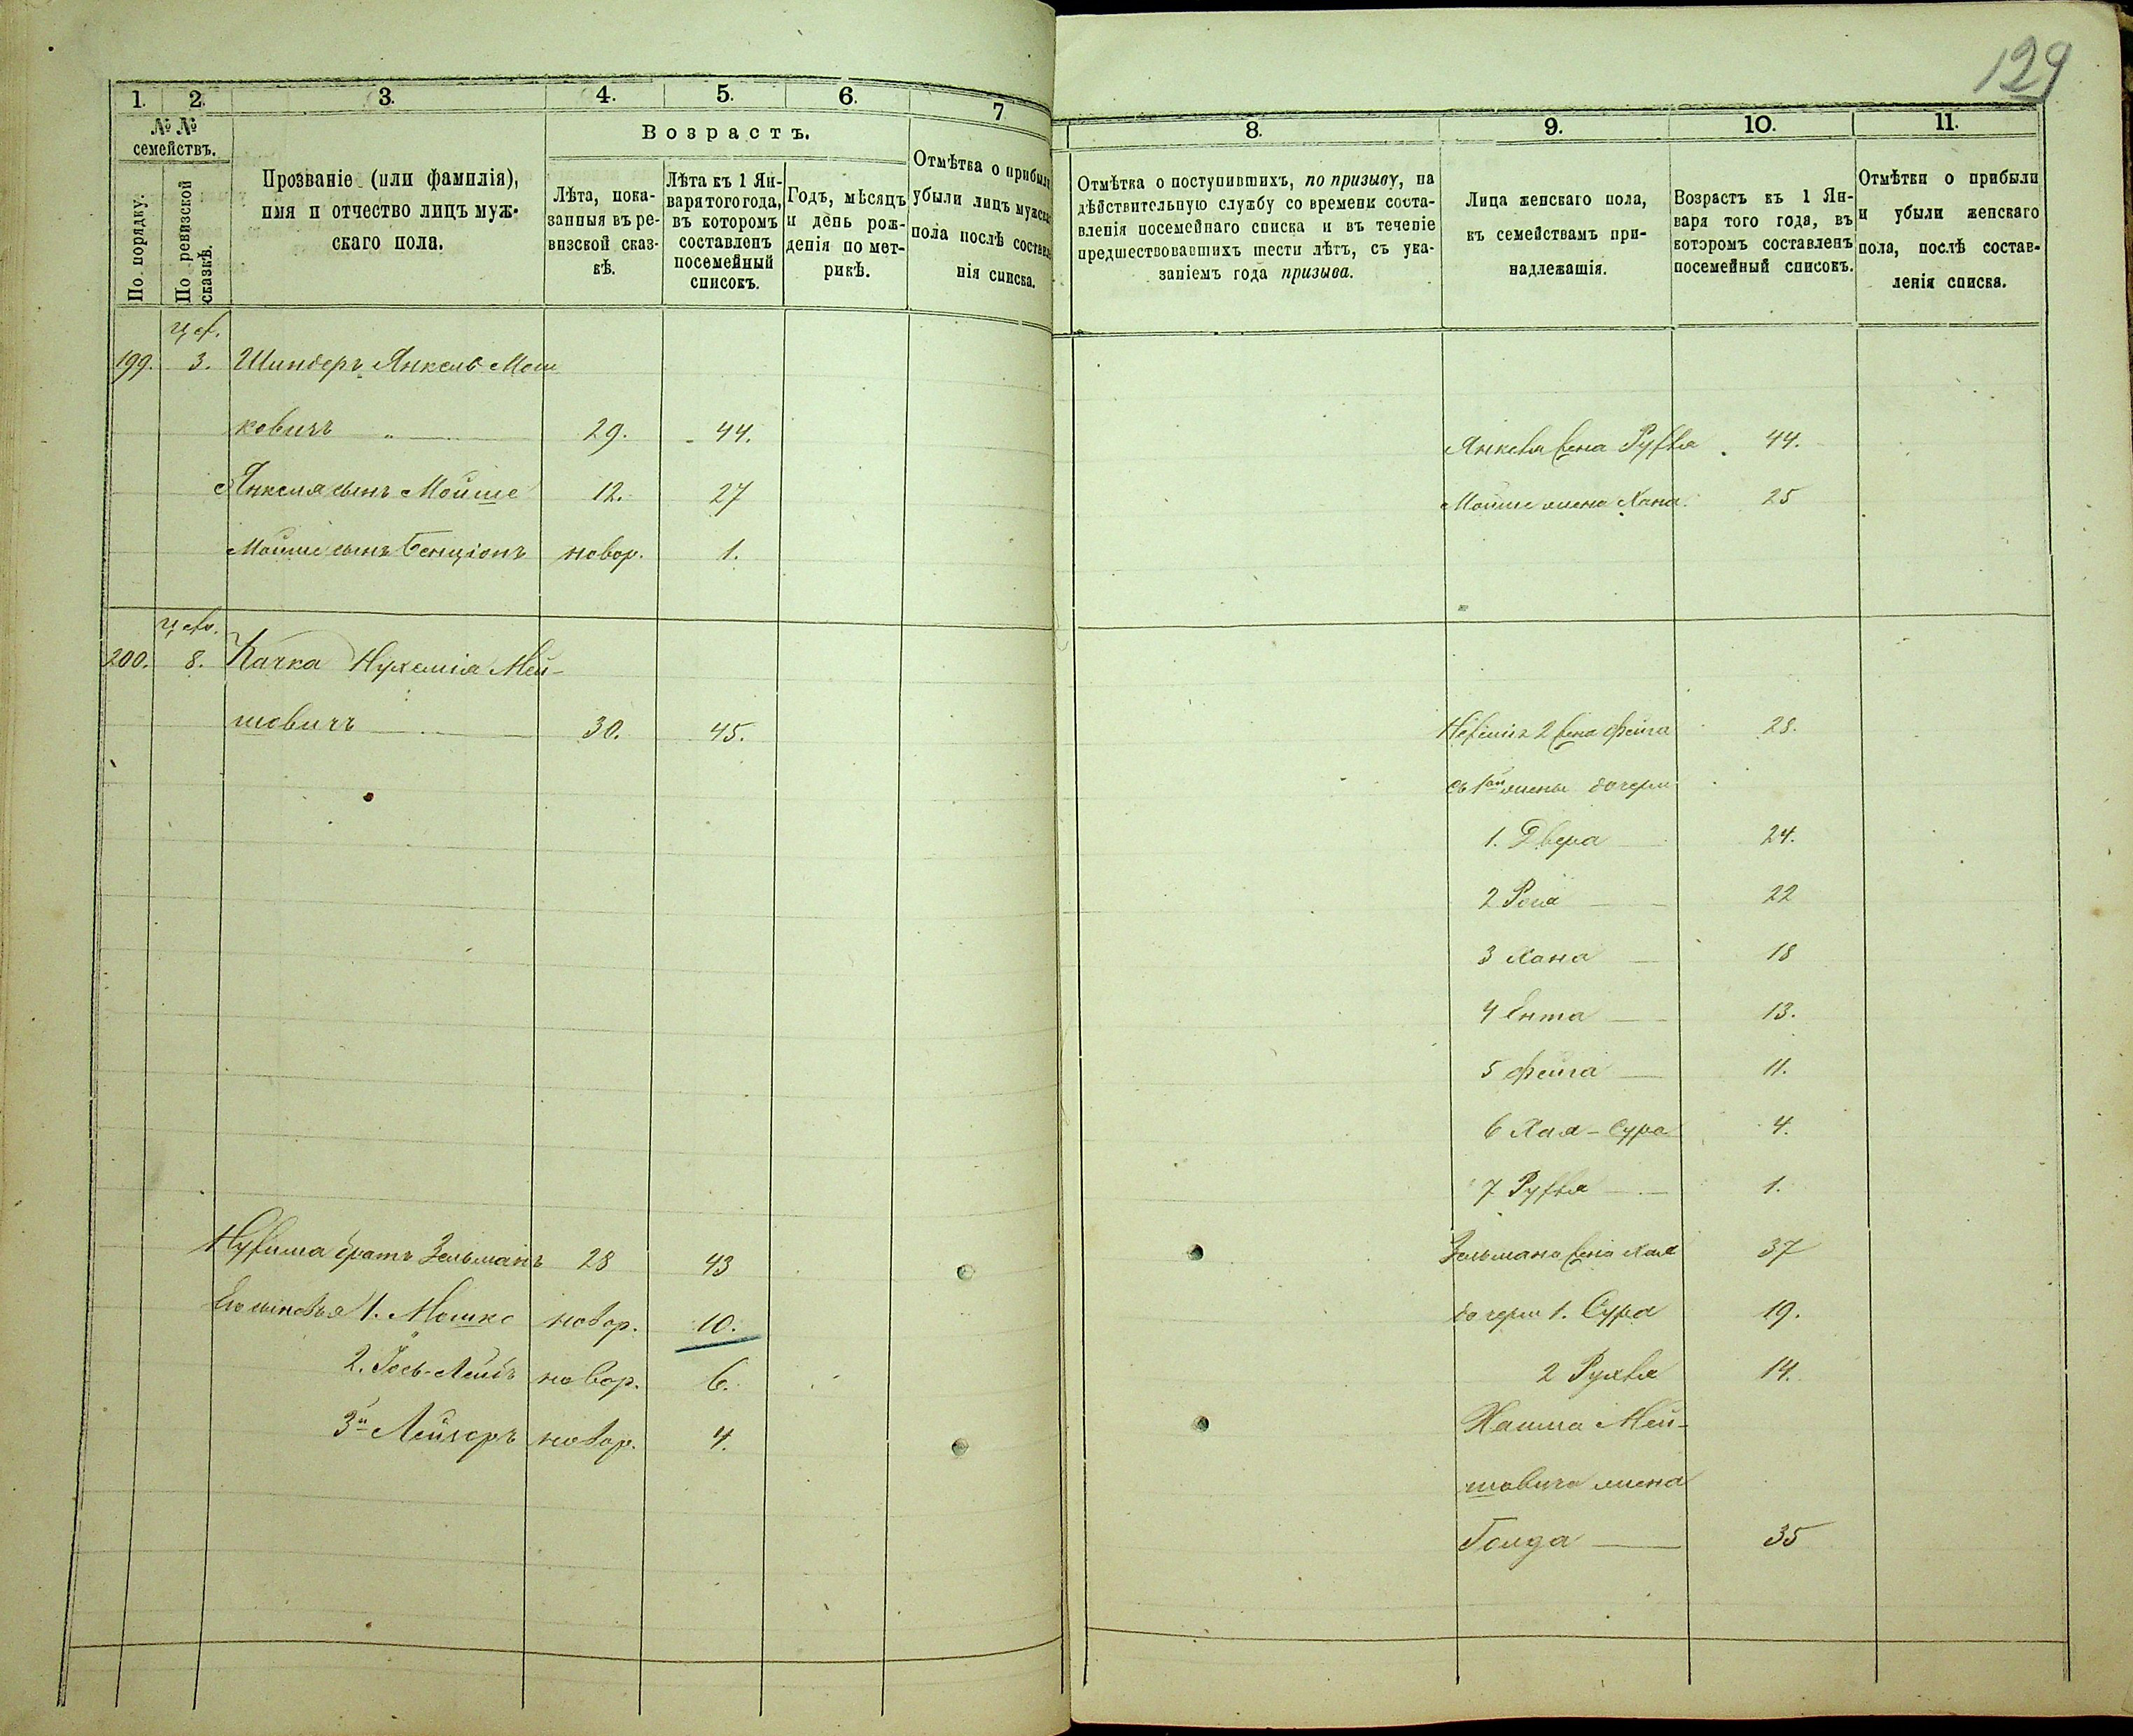 129
1. 2. 3. 4. 5. 6. 7
№ № семействъ.
По порядку.
По ревизской сказкѣ.
Прозваніе (или фамилія),
имя и отчество лицъ муж-
скаго пола.
Возрастъ.
Лѣта, пока-
занныя въ ре-
визской сказ-
кѣ.
Лѣта къ 1 Ян-
варя того года,
въ которомъ
составленъ
посемейный
списокъ.
Годъ, мѣсяцъ
и день рож-
денія по мет-
рикѣ.
Отмѣтка о прибыли
убыли лицъ мужска
пола послѣ составле
нія списка.
8. 9. 10. 11.
Отмѣтка о поступившихъ, по призыву, на
дѣйствительную службу со времени соста-
вленія посемейнаго списка и въ теченіе
предшествовавшихъ шести лѣтъ, съ ука-
заніемъ года призыва.
Лица женскаго пола,
къ семействамъ при-
надлежащія.
Возрастъ къ 1 Ян-
варя того года, въ
которомъ составленъ
посемейный списокъ.
Отмѣтки о прибыли
и убыли женскаго
пола, послѣ состав-
ленія списка.
199. 3. Шиндеръ Янкель Мош
ковичъ 29. 44. Янкеля жена Рухля 44.
Янкеля сынъ Мойше 12. 27 Мойше жена Хана 25
Мойше сынъ Бенціонъ новор. 1.
200. 8. Качка Нухемія Мей-
шовичъ 30. 45. 2 жена Фейга 28.
съ 1ой жены дочери
1. Двера 24.
2 22
3 Хана 18
4 Ента 13.
5 Фейга 11.
6 Хая-Сура 4.
7 Рухля 1.
братъ Зельманъ 28 43 Зельмана жена Хая 37
Его сыновья 1. Мошко новор. 10. дочери 1. Сура 19.
2. Іось-Лейбъ новор. 6. 2 Рухля 14.
3й Лейзеръ новор. 4. Мей-
шовича жена
Голда 35